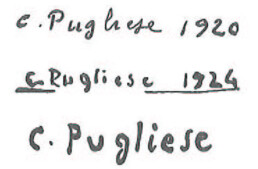 C. Pugliese 1920
C. Pugliese 1924
C. Pugliese